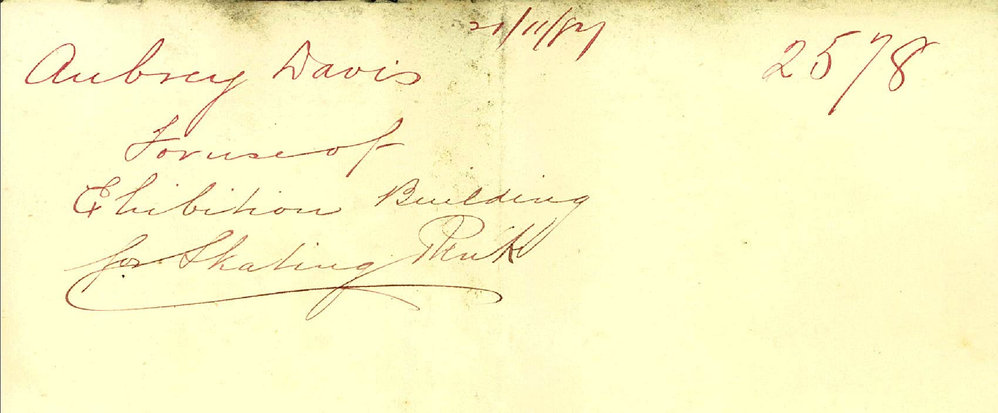 21/11/87
2578
Aubrey Davis
For use of
Ehibition Building
for Skating Rink